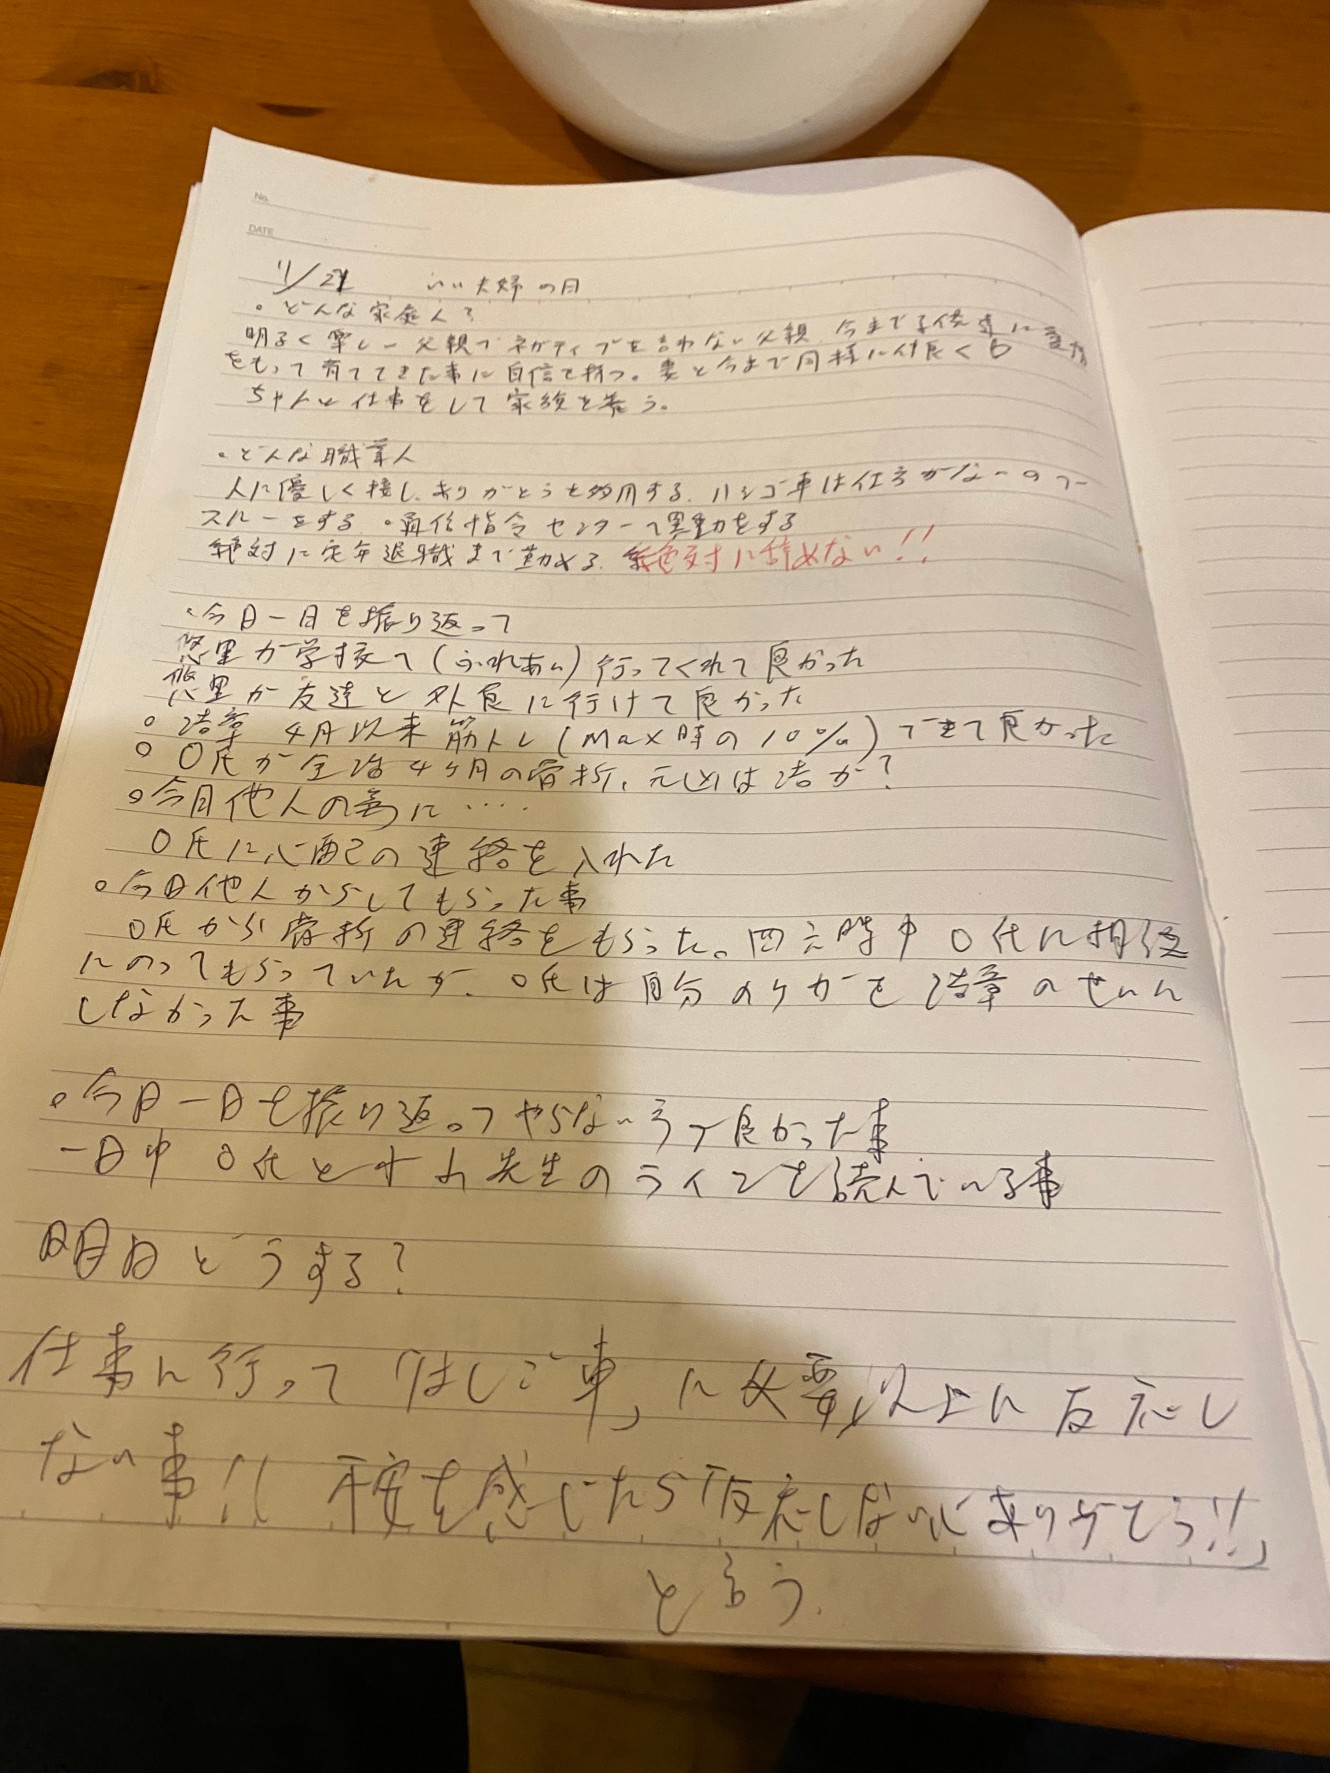 No.
DATE
11/22 いい夫婦の日
。どんな家庭人?
明るく楽しい父親でネガティブを言わない父親。今まで子供達に愛情
をもって育ててきた事に自信を持つ。妻と今まで同様に仲良く。
ちゃんと仕事をして家族を養う。
。どんな職業人
人に優しく接し、ありがとうを多用する。ハシゴ車は仕方がないので
スルーをする。通信指令センターへ異動をする
絶対に定年退職まで勤める。絶対に辞めない!!
。今日一日を振り返って
悠里が学校へ(ふれあい)行ってくれて良かった
悠里が友達と外食に行けて良かった
。浩章 4月以来筋トレ(Max時の10%)できて良かった
。O氏が全治4ヶ月の骨折、元凶は浩か?
。今日他人の為に....
O氏に心配の連絡を入れた
。今日他人からしてもらった事
O氏から骨折の連絡をもらった。四六時中O氏に相談
にのってもらっていたが、O氏は自分のケガを浩章のせいに
しなかった事
。今日一日を振り返ってやらない方が良かった事
一日中O氏と先生のラインを読んでいる事
明日どうする?
仕事に行って「はしご車」に必要以上に反応し
ない事!! 不安を感じたら「反応しないにありがとう!!」
と言う。